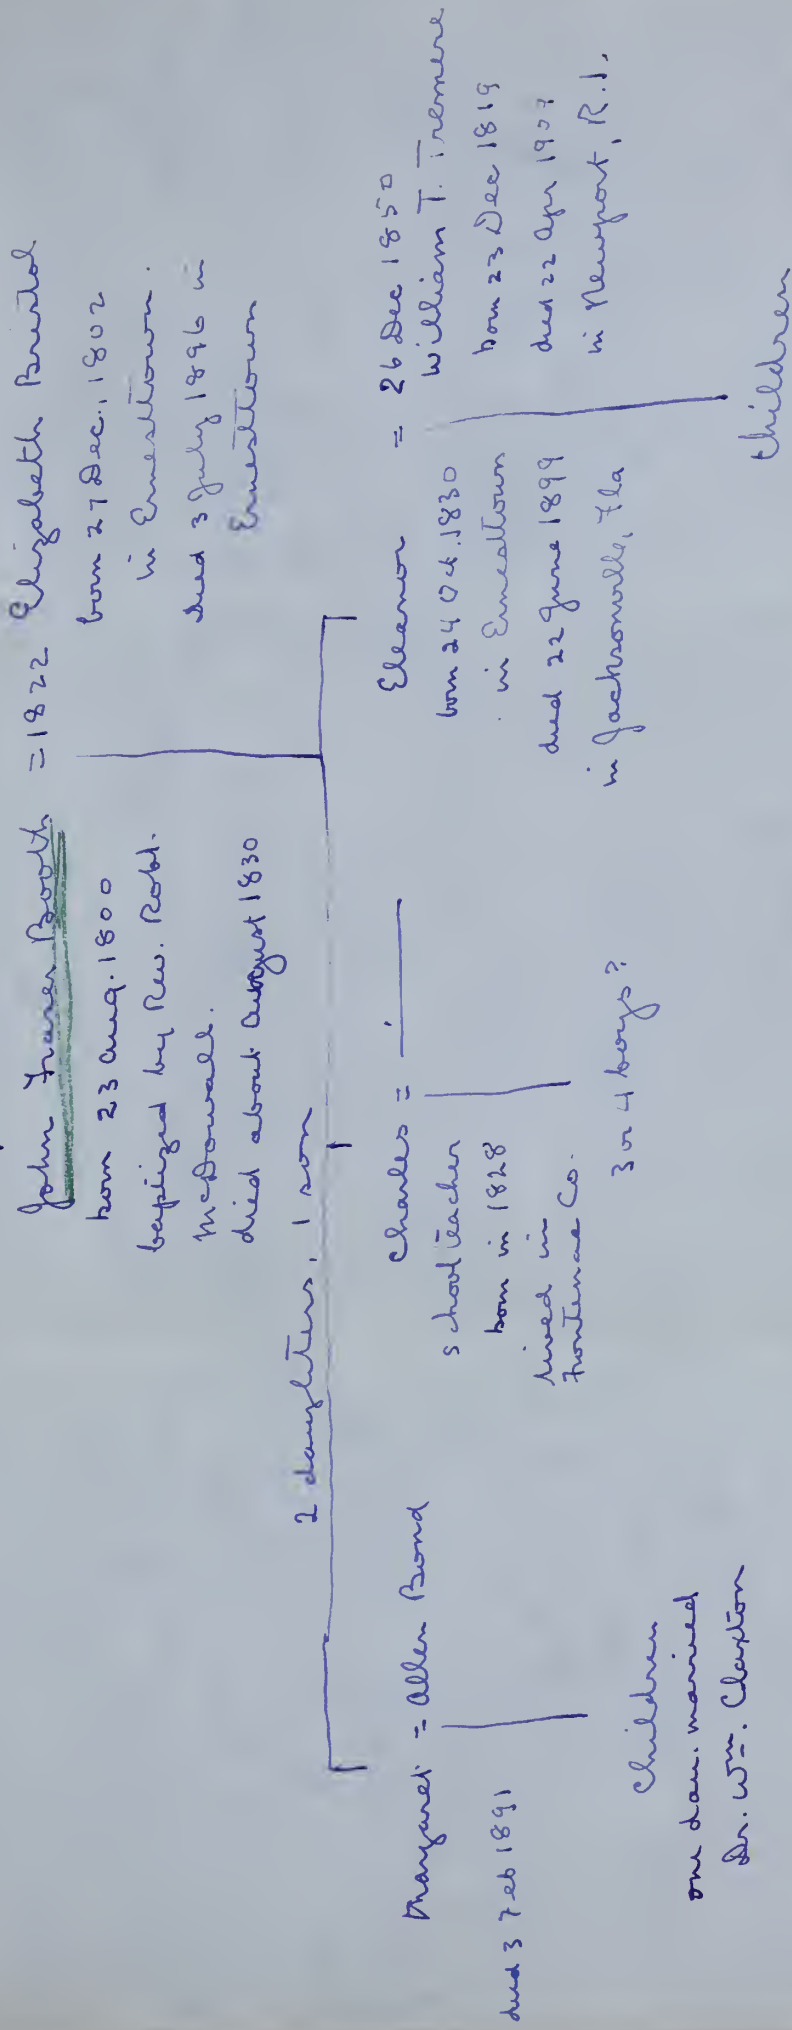 John Fraser Booth = 1822 Elizabeth Bristol
born 23 Aug. 1800
baptized by Rev. Robt.
McDowall.
died about August 1830
born 27 Dec. 1802
in Ernesttown.
died 3 July 1896 in
Ernesttown
2 daughters, 1 son
Margaret = Allen Bond
died 3 Feb 1891
Children
one dau. married
Dr. Wm. Claxton
Charles =
school teacher
born in 1828
lived in
Frontenac Co.
3 or 4 boys?
Eleanor = 26 Dec 1850
William T. Tremere
born 24 Oct. 1830
in Ernesttown
died 22 June 1899
in Jacksonville, Fla
born 23 Dec 1819
died 22 Apr
in Newport, R.I.
Children